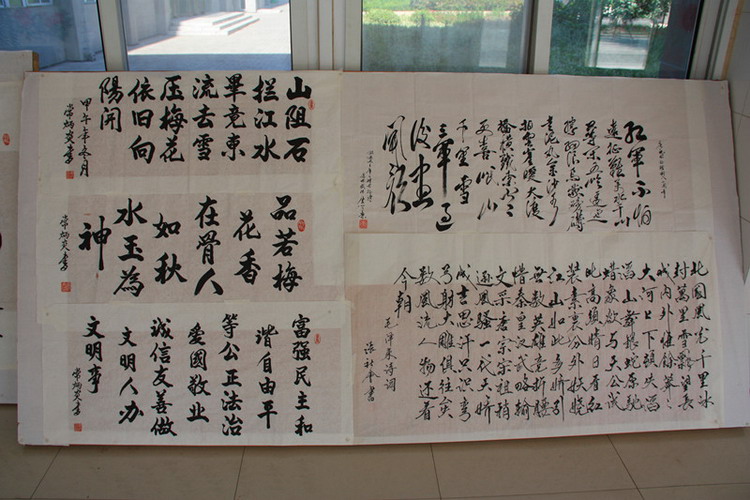 山阻石
拦江水
畢竟東
流去雪
压梅花
依旧向
陽開
甲午年冬月
常炳炎書
品若梅
花香
在骨人
如秋
水玉為
神
常炳炎書
富强民主和
谐自由平
等公正法治
爱國敬业
诚信友善做
文明人办
文明事
常炳炎書
红軍不怕
遠征難万水千山
等闲五岭逶迤
腾细浪乌蒙磅礴
走泥丸金沙水
拍雲崖暖大渡
橋横鐵索寒
更喜岷山
千里雪
三軍过
後盡
開颜
北國風光千里冰
封萬里雪飘望長
城内外惟餘莽〻
大河上下頓失滔
滔山舞銀蛇原馳
蜡象欲与天公试
比高須晴日看红
装素裹分外妖娆
江山如此多娇引
无数英雄竞折腰
惜秦皇汉武略输
文采唐宗宋祖稍
逊風骚一代天骄
成吉思汗只识弯
弓射大雕俱往矣
数風流人物还看
今朝
毛泽东诗词
張社奎書